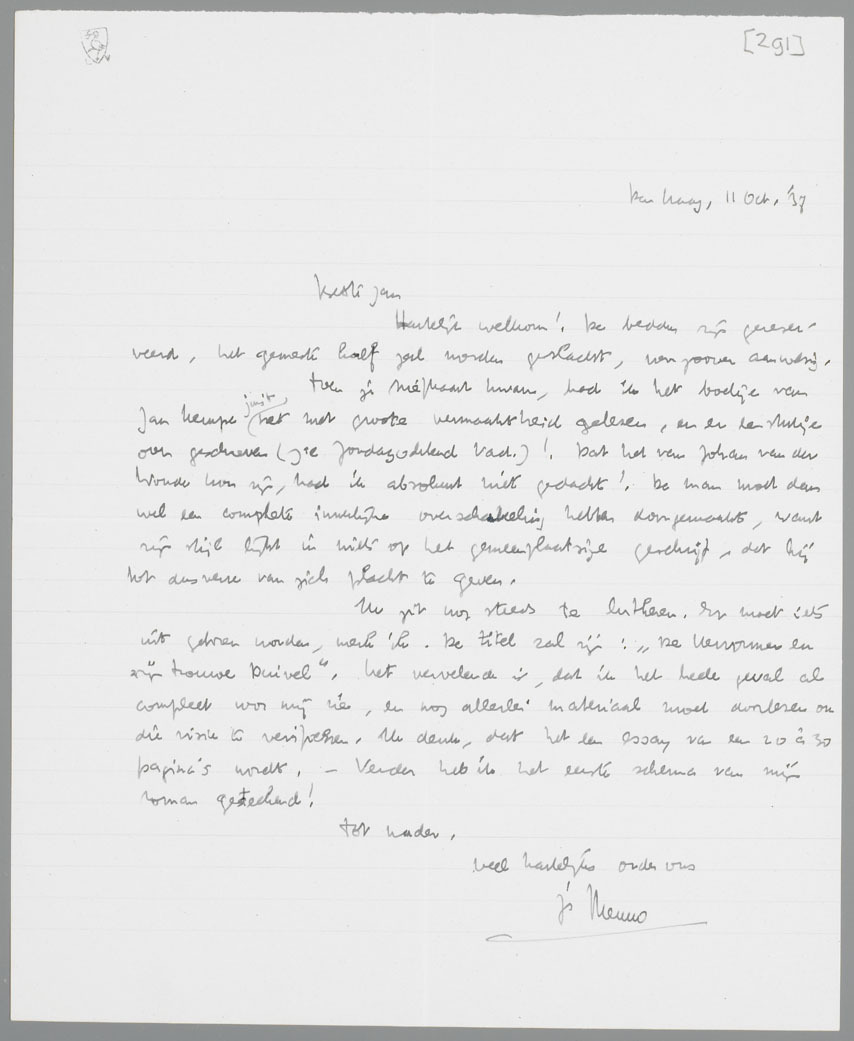 [291]
Den Haag, 11 Oct. '37
Beste Jan
Hartelijk welkom! De bedden zijn gereser-
veerd, het gemeste kalf zal worden geslacht, aanwezig.
Toen je briefkaart kwam, had ik het boekje van
Jan Kempe juist met groote vermaaktheid gelezen, en er een stukje
over geschreven (zie Zondagochtend Vad.)! Dat het van Johan van der
Woude kon zijn, had ik absoluut niet gedacht! De man moet dan
wel een complete innerlijke overschakeling hebben doorgemaakt, want
zijn stijl lijkt in niets op het gemeenplaatsige geschrijf, dat hij
tot dusverre van zich placht te geven.
Ik zit nog steeds te lutheren. Er moet iets
uit geboren worden, merk ik. De titel zal zijn: „De Hervormer en
zijn trouwe Duivel". Het vervelende is, dat ik het heele geval al
compleet voor mij zie, en nog allerlei materiaal moet doorlezen om
die visie te verifieeren. Ik denk, dat het een essay van een 20 à 30
pagina's wordt. — Verder heb ik het eerste schema van mijn
roman geteekend!
Tot nader.
veel hartelijks onder ons
je Menno